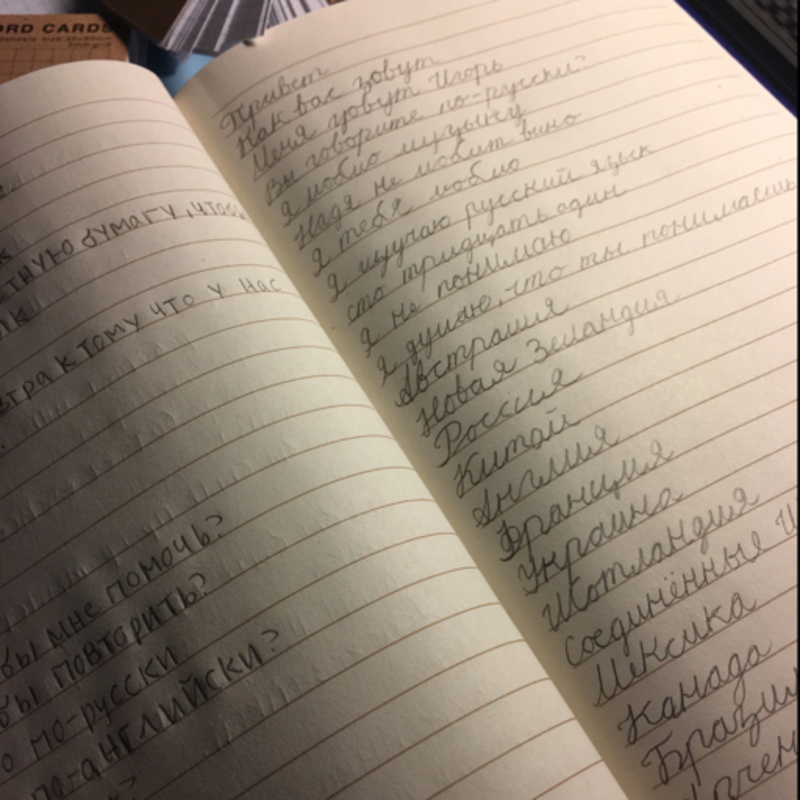 ORD CARDS
тную бумагу, чтобы
втра к тому что у нас
бы мне помочь?
бы повторить?
о по-русски
по-английски?
Привет
Как вас зовут
Меня зовут Игорь
Вы говорите по-русски?
Я люблю музыку
Надя не любит вино
Я тебя люблю
Я изучаю русский язык
сто тридцать один
Я не понимаю
Я думаю, что ты понимаешь
Австралия
Новая Зеландия
Россия
Китай
Англия
Франция
Украина
Шотландия
Соединённые
Мексика
Канада